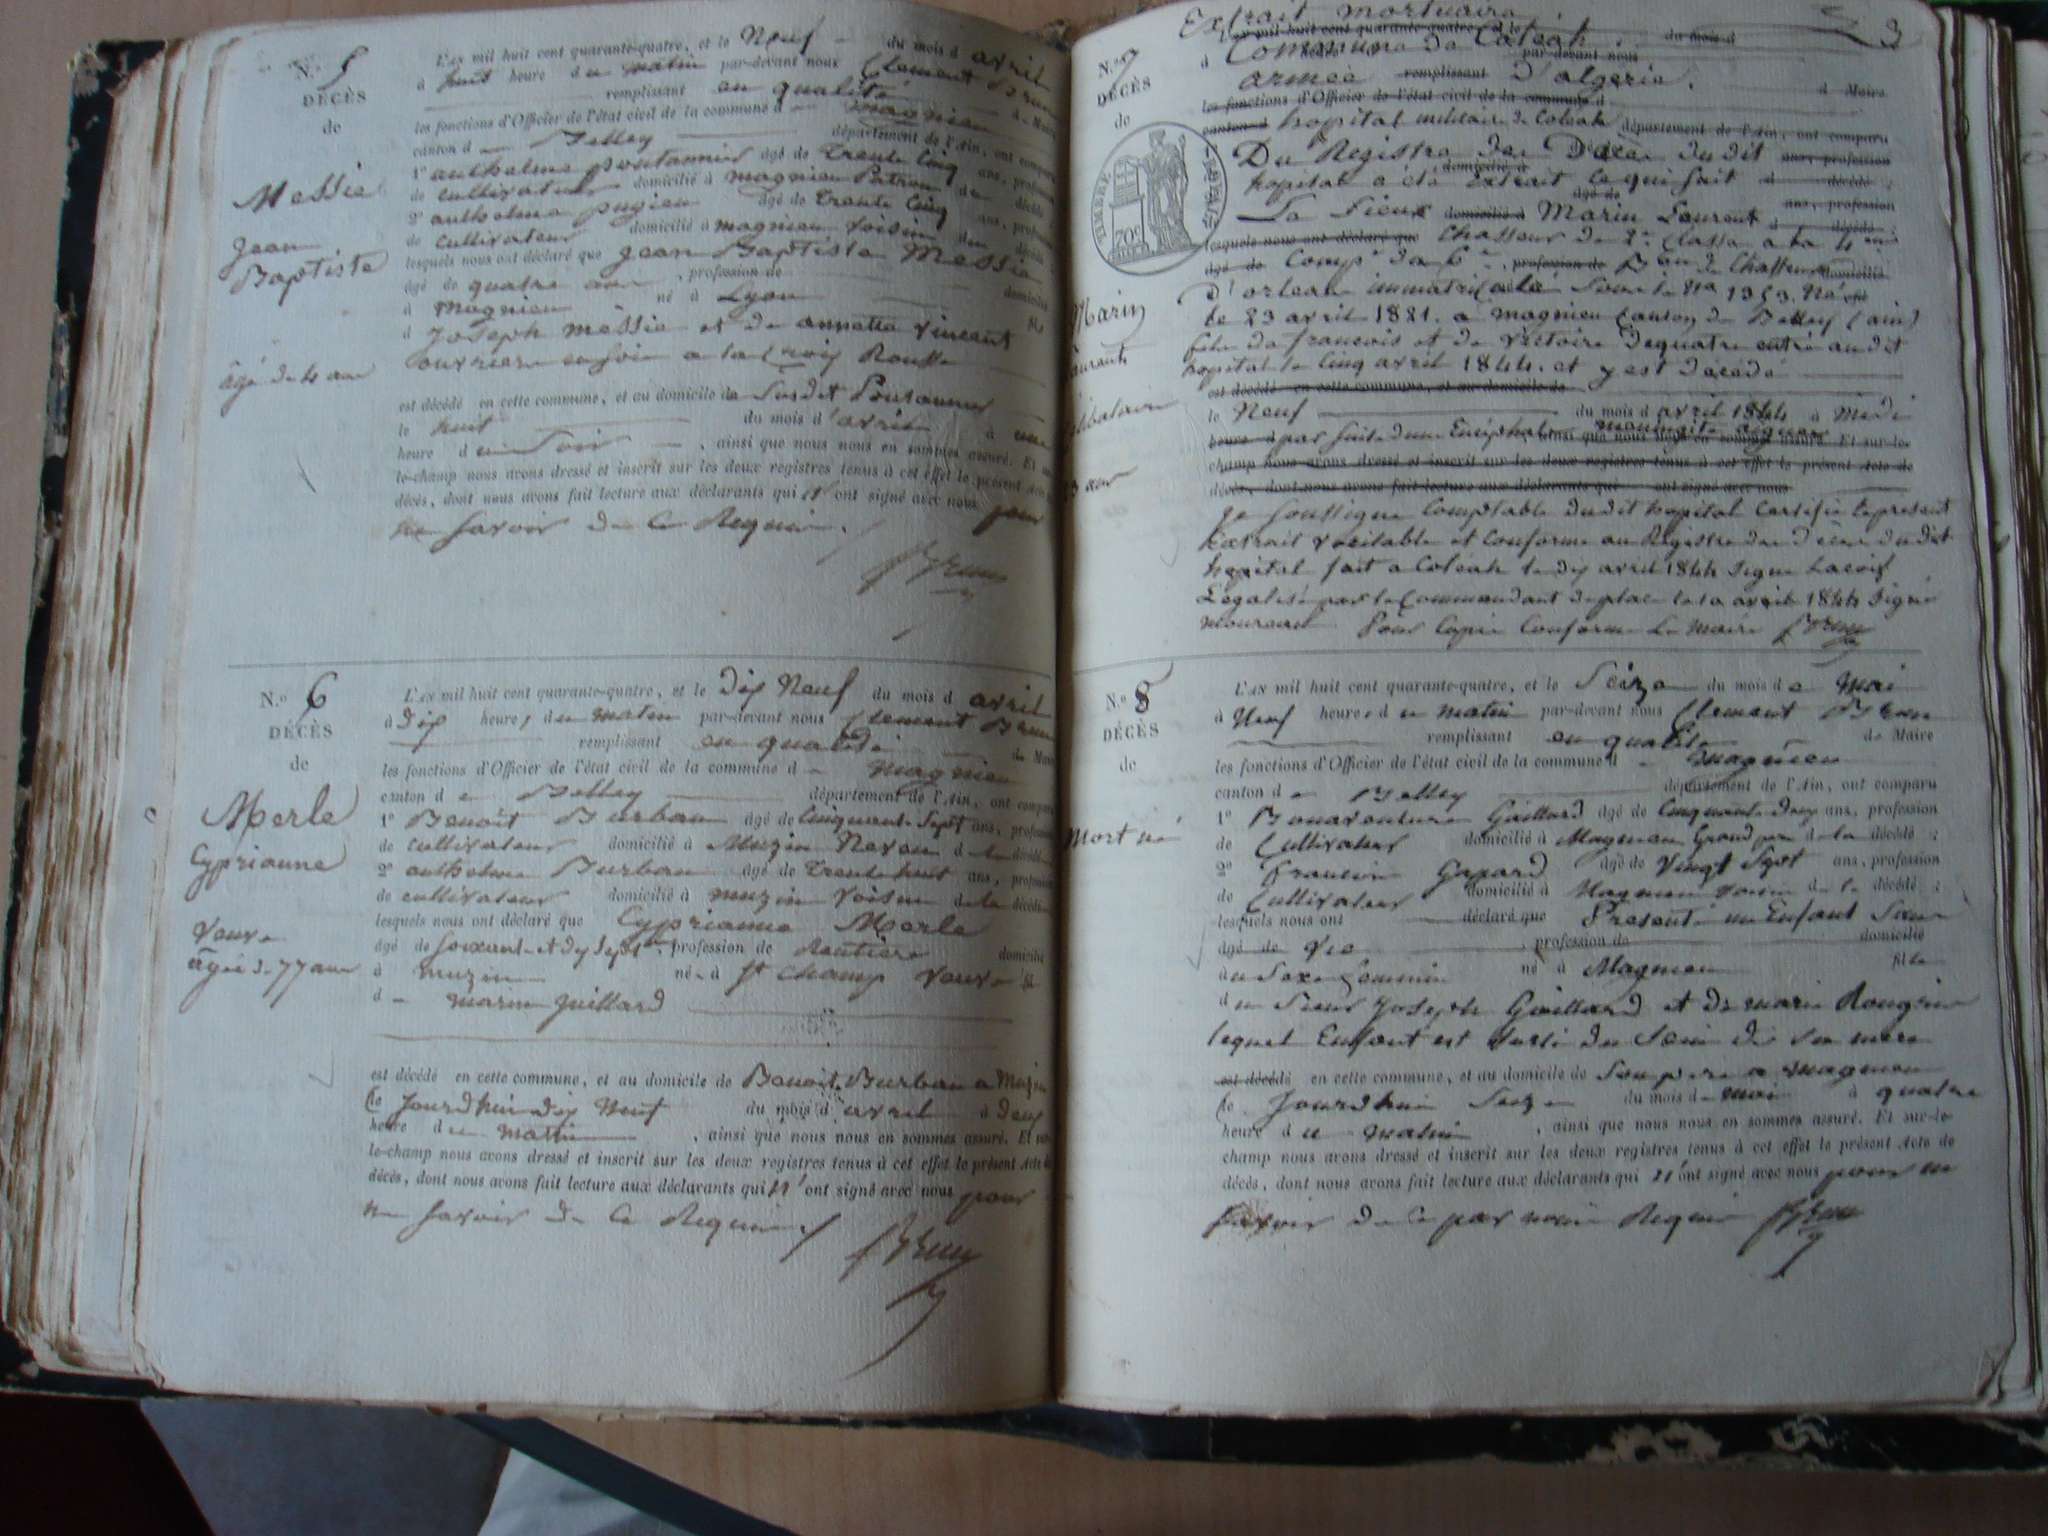 N.o 5
DÉCÈS
de
Messie
Jean
Baptiste
âgé de 4 ans
L'an mil huit cent quarante-quatre, et le Neuf du mois d avril
à huit heure du matin par-devant nous Clement Brun
remplissant en qualité de Maire
les fonctions d'Officier de l'état civil de la commune d Magnieu
canton d Belley département de l'Ain, ont comparu
1o anthelme âgé de Trente Cinq ans, profession
de cultivateur domicilié à magnieu Patron du décédé
2o anthelme pugieu âgé de trente Cinq ans, profession
de cultivateur domicilié à magnieu voisin du décédé
lesquels nous ont déclaré que Jean Baptiste Messie
âgé de quatre ans, profession de domicilié
à Magnieu né à Lyon fils
d Joseph Messie et de annette vincent
ouvriers en soie a la Croix Rousse
est décédé en cette commune, et au domicile de Susdit
le huit du mois d'avril à une
heure du Soir, ainsi que nous nous en sommes assuré. Et sur-
le-champ nous avons dressé et inscrit sur les deux registres tenus à cet effet le présent Acte de
décès, dont nous avons fait lecture aux déclarants qui n'ont signé avec nous pour
ne Savoir de Ce Requis.
Brun
N.o 6
DÉCÈS
de
Merle
Cyprianne
Veuve
âgée de 77 ans
L'an mil huit cent quarante-quatre, et le dix Neuf du mois d avril
à Dix heures du matin par-devant nous Clement Brun
remplissant en qualité de Maire
les fonctions d'Officier de l'état civil de la commune d Magnieu
canton de Belley département de l'Ain, ont comparu
1o Benoit Burban âgé de Cinquante Sept ans, profession
de cultivateur domicilié à Muzin Neveu de la décédée
2o anthelme Burban âgé de Trente huit ans, profession
de cultivateur domicilié à muzin voisin de la décédée
lesquels nous ont déclaré que Cyprianne Merle
âgé de Soixante et dix Sept, profession de Rentiere domicilié
à muzin née à St Champ Veuve
d marin Juillard
est décédé en cette commune, et au domicile de Benoit Burban a Muzin
le Jourdhui dix Neuf du mois d'avril à deux
heure du matin, ainsi que nous nous en sommes assuré. Et sur-
le-champ nous avons dressé et inscrit sur les deux registres tenus à cet effet le présent Acte de
décès, dont nous avons fait lecture aux déclarants qui N'ont signé avec nous pour
ne Savoir de Ce Requis.
Brun
3
Extrait mortuaire
N.o 7
DÉCÈS
de
TIMBRE ROYAL
70c
Marin
Laurent
Célibataire
23 ans
L'an mil huit cent quarante-quatre et le du mois d
à Commune de Coleah par-devant nous
armée remplissant d'algerie. de Maire
les fonctions d'Officier de l'état civil de la commune d
canton d hopital militaire de Coleah département de l'Ain, ont comparu
Du Registre des Décès dudit ans, profession
domicilié à
hopital a été Extrait Ce qui suit d décédé;
âgé de
Le Sieur domicilié à Marin Laurent ans, profession
lesquels nous ont déclaré que Chasseur de 2e Classe a la 4eme
âgé de Compie du 6e, profession de Bon de Chasseurs domicilié
D'orleans immatriculé Sous le No 1353. Né
le 23 avril 1821. a magnieu Canton de Belley (ain)
fils de francois et de victoire Dequatre entré audit
hopital le Cinq avril 1844. et y est décédé
est décédé en cette commune, et au domicile de
le Neuf du mois d avril 1844 à Midi
heure d par suite dune Encéphalo meningite aigue ainsi que nous nous en sommes assuré. Et sur-le-
champ nous avons dressé et inscrit sur les deux registres tenus à cet effet le présent Acte de
décès, dont nous avons fait lecture aux déclarants que ont signé avec nous
Je Soussigné Comptable dudit hopital Certifie le present
Extrait veritable et Conforme au Registre des décès dudit
hopital fait a Coleah le dix avril 1844 Signé
Légalisé par le Commandant de place le 10 avril 1844 Signé
Pour Copie Conforme Le Maire Brun
N.o 8
DÉCÈS
de
Mort né
L'an mil huit cent quarante-quatre, et le Seize du mois de Mai
à Neuf heures du matin par-devant nous Clement Brun
remplissant en qualité de Maire
les fonctions d'Officier de l'état civil de la commune d Magnieu
canton de Belley département de l'Ain, ont comparu
1o Bonaventure Gaillard âgé de Cinquante deux ans, profession
de Cultivateur domicilié à Magnieu Grand père de la décédé;
2o Francois âgé de Vingt Sept ans, profession
de Cultivateur domicilié à Magnieu voisin de la décédé;
lesquels nous ont déclaré que Présenté un Enfant Sans
âgé de vie, profession de domicilié
du Sexe feminin né à Magnieu fils
du Sieur Joseph Gaillard et de marie
lequel Enfant est Sorti du Sein de Sa mere
est décédé en cette commune, et au domicile de Son pere a magnieu
le Jourdhui Seize du mois de mai à quatre
heure du matin, ainsi que nous nous en sommes assuré. Et sur-le-
champ nous avons dressé et inscrit sur les deux registres tenus à cet effet le présent Acte de
décès, dont nous avons fait lecture aux déclarants qui n'ont signé avec nous pour ne
Savoir de Ce par nous Requis Brun